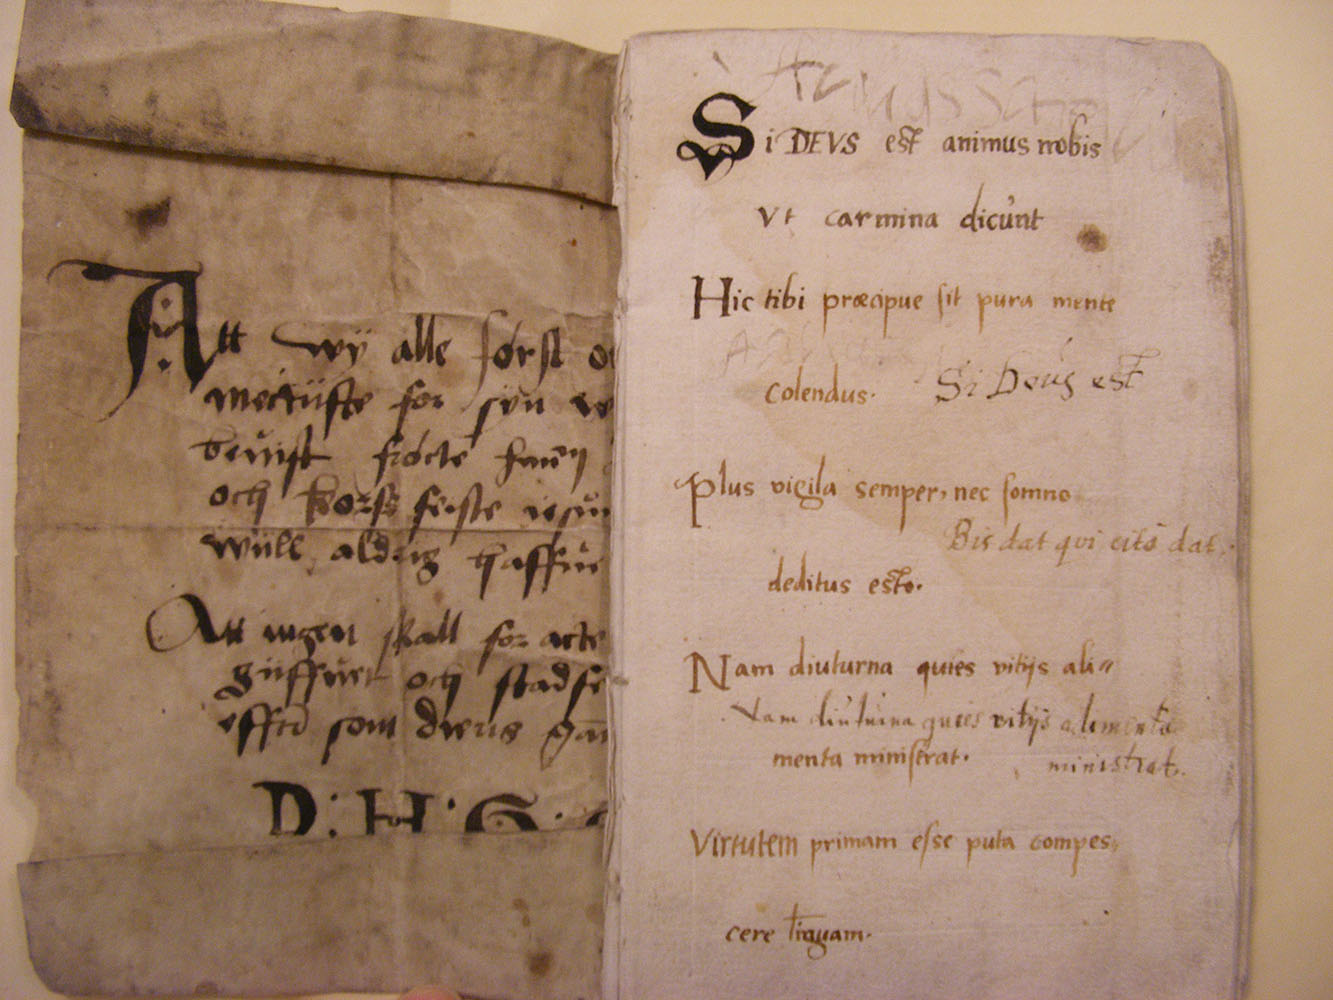 Att wÿ alle først
for syn
beuist frøcte
och korss feste iesu
wiill aldrig haffue
Att ingen skall for acte
giiffuet och stadfe
effter som
D : H : S :
Si DEVS est animus nobis
Vt carmina dicunt
Hic tibi præcipue sit pura mente
colendus. Si Deus est
Plus vigila semper, nec somno
Bis dat qui cito dat.
deditus esto.
Nam diuturna quies vitijs ali=
Nam diuturna quies vitijs alimenta
menta ministrat. ministrat.
Virtutem primam esse puta compes,
cere linguam.